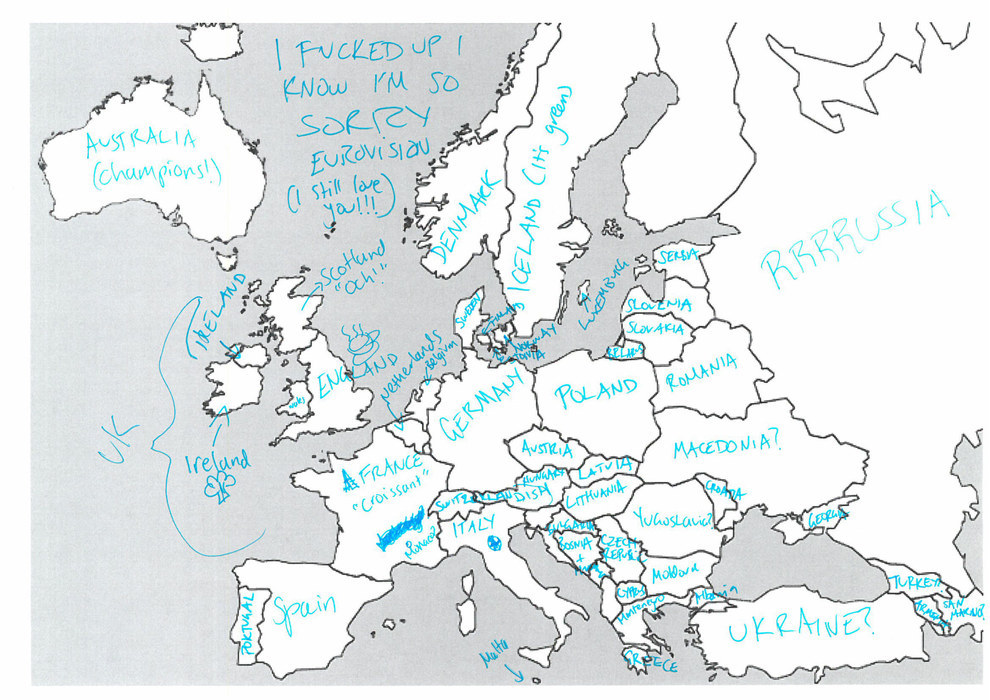 I FUCKED UP I
KNOW I'M SO
SORRY
EUROVISION
(I still love
you!!!)
AUSTRALIA
(champions!)
DENMARK
ICELAND (it's green)
RRRRUSSIA
SERBIA
Scotland
"Och!"
IRELAND
LUXEMBURG
SLOVENIA
SLOVAKIA
SWEDEN
NORWAY
ESTONIA
ENGLAND
Netherlands
Belgium
ROMANIA
GERMANY
POLAND
UK
Ireland
MACEDONIA?
AUSTRIA
LATVIA
FRANCE
"Croissant"
HUNGARY
SWITZERLAND
LITHUANIA
CROATIA
ITALY
Yugoslavia?
GEORGIA
Monaco?
BOSNIA
+
CZECH
REPUBLIC
Moldova
TURKEY
Spain
PORTUGAL
CYPRUS
Montenegro
Albania
ARMENIA
SAN
MARINO?
UKRAINE?
Malta
GREECE